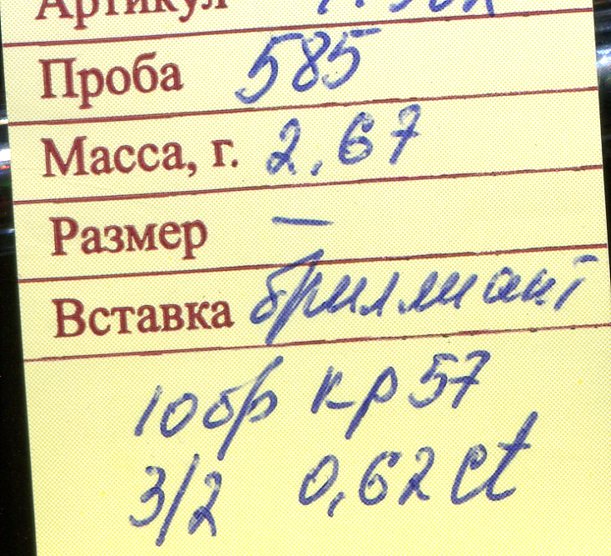 Артикул
Проба 585
Масса, г. 2.67
Размер —
Вставка бриллиант
10бр кр57
3/2 0,62 ct